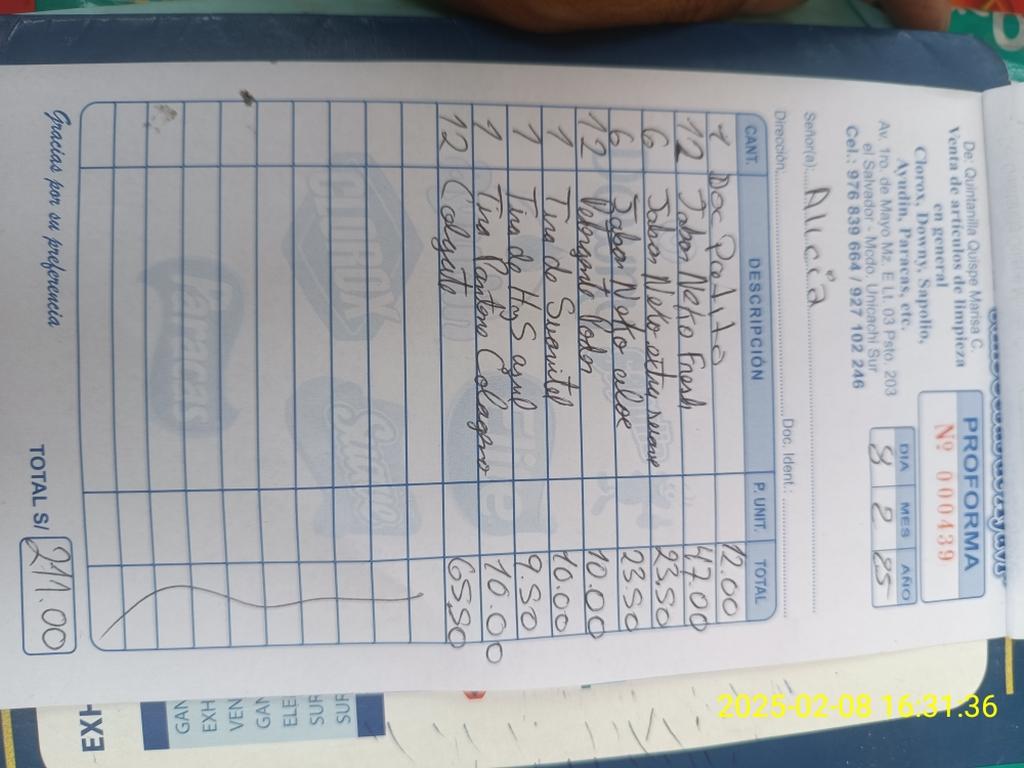 De: Quintanilla Quispe Marisa C.
Venta de artículos de limpieza
en general
Clorox, Downy, Sapolio,
Ayudín, Paracas, etc.
Av. 1ro. de Mayo Mz. E Lt. 03 Psto. 203
el Salvador - Mcdo. Unicachi Sur
Cel.: 976 839 664 / 927 102 246
PROFORMA
Nº 000439
DIA MES AÑO
8 2 25
Señor(a): Alicia
Dirección: Doc. Ident.:
CANT. DESCRIPCIÓN P. UNIT. TOTAL
1 Doc Palito 12.00
12 Jabon Neko Fresh 47.00
6 Jabon Neko 23.50
6 Jabon Neko aloe 23.50
12 10.00
1 Tira de Suavitel 10.00
1 Tira de HyS azul 9.50
1 Tira Pantene Colageno 10.00
12 Colgate 65.50
CLOROX
Paracas
TOTAL S/ 211.00
Gracias por su preferencia
EXH
GAN
EXH
VEN
GAN
ELE
SUR
SUR
2025-02-08 16:31:36